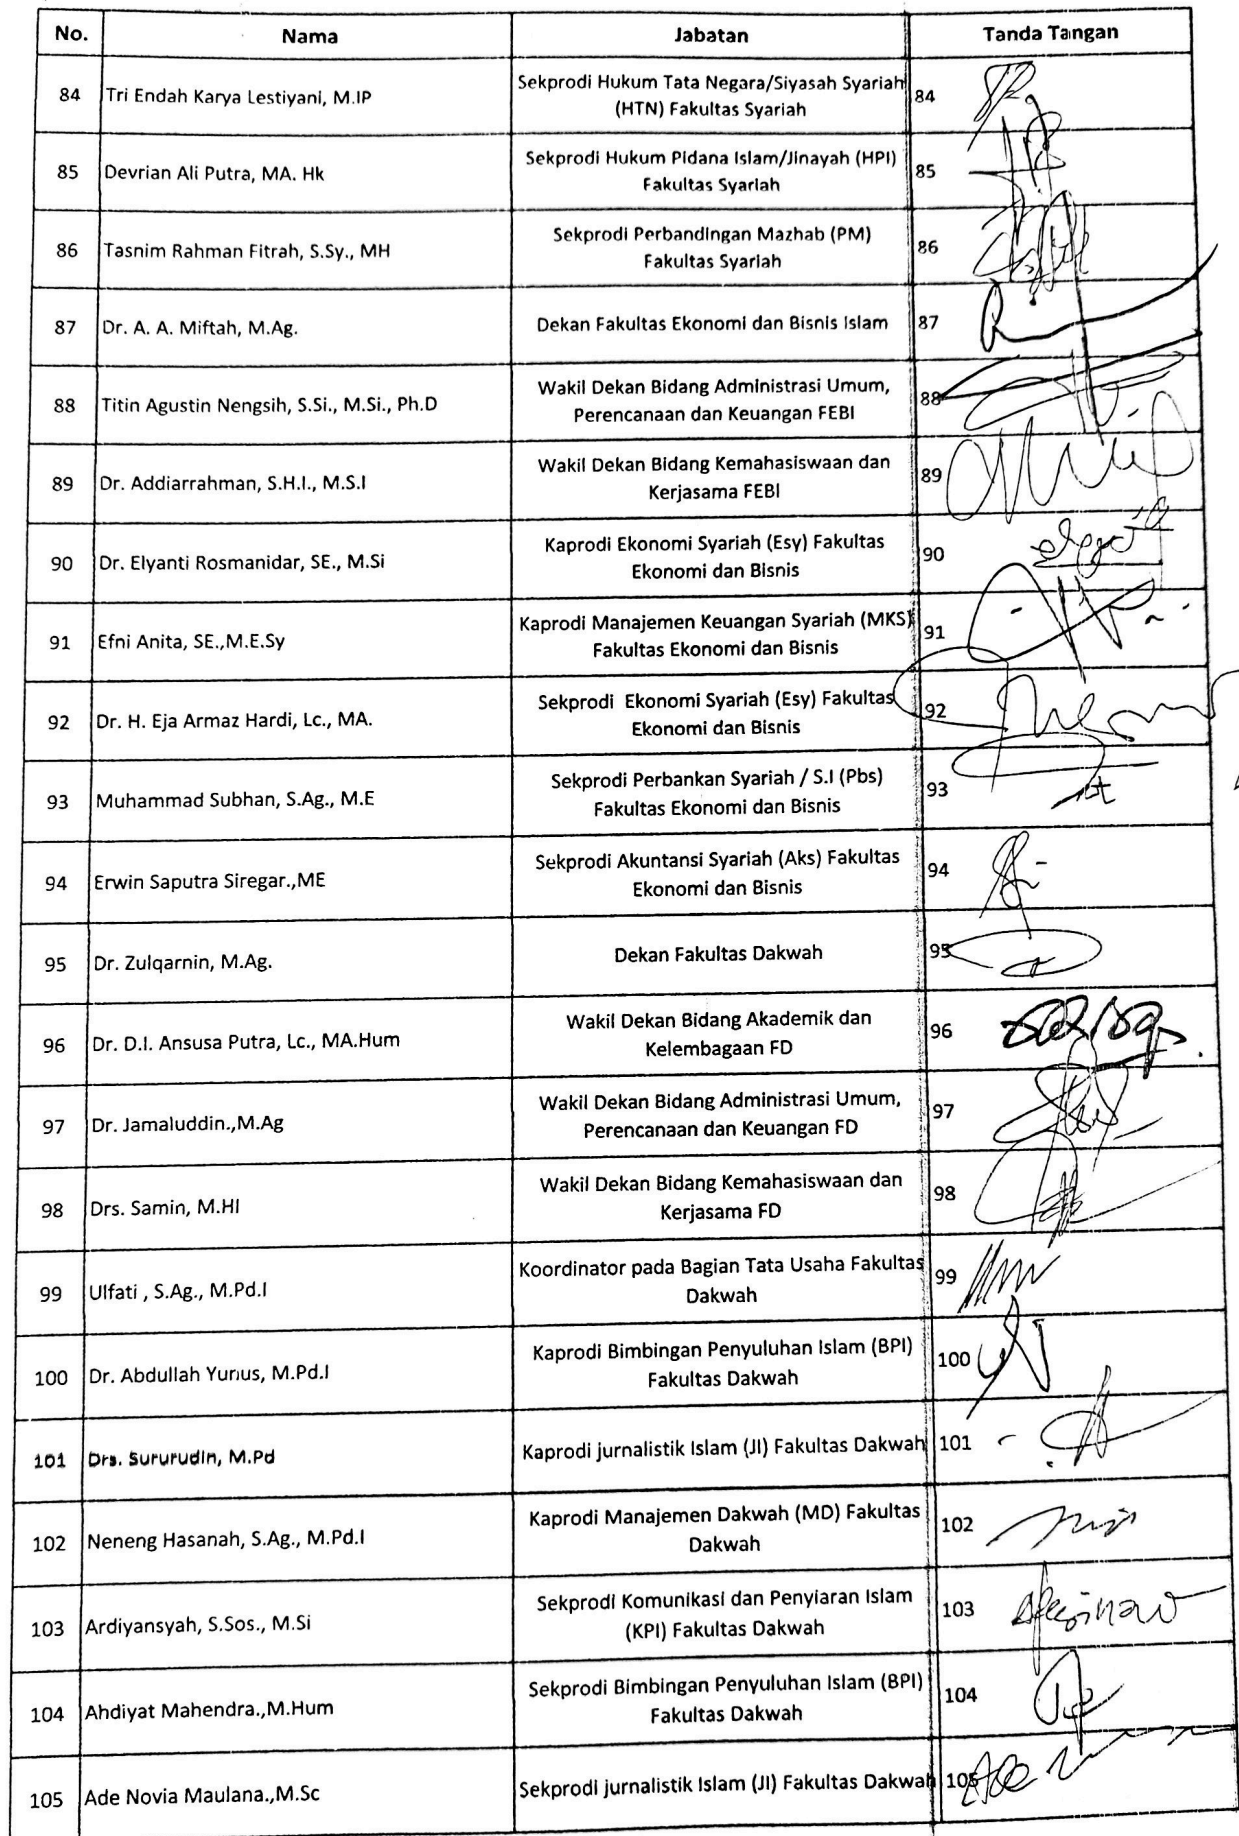 No. Nama Jabatan Tanda Tangan
84 Tri Endah Karya Lestiyani, M.IP Sekprodi Hukum Tata Negara/Siyasah Syariah 84
(HTN) Fakultas Syariah
85 Devrian Ali Putra, MA. Hk Sekprodi Hukum Pidana Islam/Jinayah (HPI) 85
Fakultas Syariah
86 Tasnim Rahman Fitrah, S.Sy., MH Sekprodi Perbandingan Mazhab (PM) 86
Fakultas Syariah
87 Dr. A. A. Miftah, M.Ag. Dekan Fakultas Ekonomi dan Bisnis Islam 87
88 Titin Agustin Nengsih, S.Si., M.Si., Ph.D Wakil Dekan Bidang Administrasi Umum, 88
Perencanaan dan Keuangan FEBI
89 Dr. Addiarrahman, S.H.I., M.S.I Wakil Dekan Bidang Kemahasiswaan dan 89
Kerjasama FEBI
90 Dr. Elyanti Rosmanidar, SE., M.Si Kaprodi Ekonomi Syariah (Esy) Fakultas 90
Ekonomi dan Bisnis
91 Efni Anita, SE.,M.E.Sy Kaprodi Manajemen Keuangan Syariah (MKS) 91
Fakultas Ekonomi dan Bisnis
92 Dr. H. Eja Armaz Hardi, Lc., MA. Sekprodi Ekonomi Syariah (Esy) Fakultas 92
Ekonomi dan Bisnis
93 Muhammad Subhan, S.Ag., M.E Sekprodi Perbankan Syariah / S.I (Pbs) 93
Fakultas Ekonomi dan Bisnis
94 Erwin Saputra Siregar.,ME Sekprodi Akuntansi Syariah (Aks) Fakultas 94
Ekonomi dan Bisnis
95 Dr. Zulqarnin, M.Ag. Dekan Fakultas Dakwah 95
96 Dr. D.I. Ansusa Putra, Lc., MA.Hum Wakil Dekan Bidang Akademik dan 96
Kelembagaan FD
97 Dr. Jamaluddin.,M.Ag Wakil Dekan Bidang Administrasi Umum, 97
Perencanaan dan Keuangan FD
98 Drs. Samin, M.HI Wakil Dekan Bidang Kemahasiswaan dan 98
Kerjasama FD
99 Ulfati , S.Ag., M.Pd.I Koordinator pada Bagian Tata Usaha Fakultas 99
Dakwah
100 Dr. Abdullah Yunus, M.Pd.I Kaprodi Bimbingan Penyuluhan Islam (BPI) 100
Fakultas Dakwah
101 Drs. Sururudin, M.Pd Kaprodi jurnalistik Islam (JI) Fakultas Dakwah 101
102 Neneng Hasanah, S.Ag., M.Pd.I Kaprodi Manajemen Dakwah (MD) Fakultas 102
Dakwah
103 Ardiyansyah, S.Sos., M.Si Sekprodi Komunikasi dan Penyiaran Islam 103
(KPI) Fakultas Dakwah
104 Ahdiyat Mahendra.,M.Hum Sekprodi Bimbingan Penyuluhan Islam (BPI) 104
Fakultas Dakwah
105 Ade Novia Maulana.,M.Sc Sekprodi jurnalistik Islam (JI) Fakultas Dakwah 105